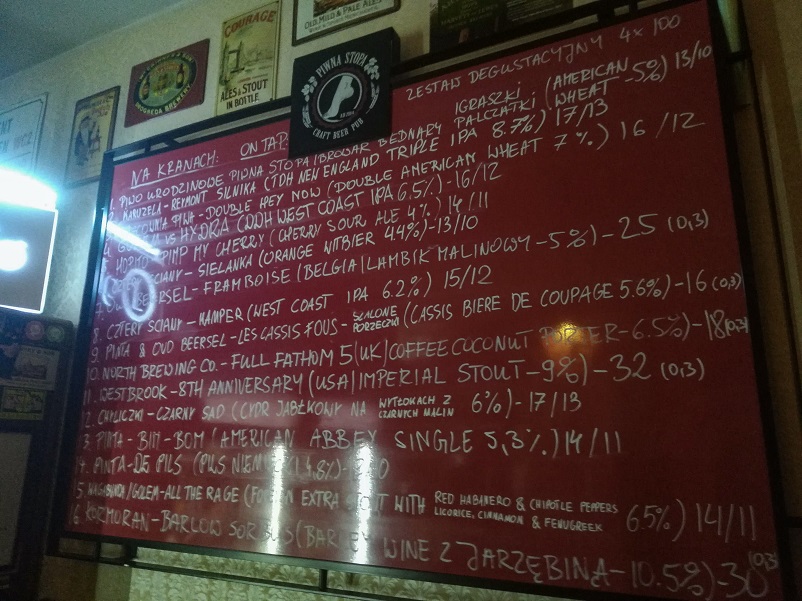 COURAGE
ALES & STOUT
IN BOTTLE.
OLD, MILD & PALE ALES
PIWNA STOPA
CRAFT BEER PUB
ZESTAW DEGUSTACYJNY 4x100
NA KRANACH: ON TAP
1. PIWO URODZINOWE PIWNA STOPA (BROWAR BEDNARY IGRASZKI PALCZATKI (AMERICAN WHEAT -5%) 13/10
2. KARUZELA - REYMONT SILNIKA (TDH NEW ENGLAND TRIPLE IPA 8.7%) 17/13
PIWA - DOUBLE HEY NOW (DOUBLE AMERICAN WHEAT 7%) 16/12
4. VS HYDRA (DDH WEST COAST IPA 6,5%) - 16/12
PIMP MY CHERRY (CHERRY SOUR ALE 4%) 14/11
ŚCIANY - SIELANKA (ORANGE WITBIER 4.4%) - 13/10
BEERSEL - FRAMBOISE (BELGIA | LAMBIK MALINOWY - 5%) - 25 (0,3)
8. CZTERY ŚCIANY - HAMPER (WEST COAST IPA 6.2%) 15/12
9. PINTA & OUD BEERSEL - LES CASSIS FOUS - SZALONE PORZECZKI (CASSIS BIERE DE COUPAGE 5.6%) - 16 (0,3)
10. NORTH BREWING CO. - FULL FATHOM 5 (UK | COFFEE COCONUT PORTER - 6.5%) - 18 (0,3)
11. WESTBROOK - 8TH ANNIVERSARY (USA | IMPERIAL STOUT - 9%) - 32 (0,3)
12. CHYLICZKI - CZARNY SAD (CYDR JABŁKOWY NA WYTŁOKACH Z CZARNYCH MALIN 6%) - 17/13
13. PINTA - BIM - BOM (AMERICAN ABBEY SINGLE 5,3%.) 14/11
14. PINTA - DE PILS (PILS 4.8%)
15 GOLEM - ALL THE RAGE (FOREIGN EXTRA STOUT WITH RED HABANERO & CHIPOTLE PEPPERS LICORICE, CINNAMON & FENUGREEK 6.5%) 14/11
16. KORMORAN - BARLOW SORBUS (BARLEY WINE Z JARZĘBINĄ - 10.5%) - 30 (0,3)